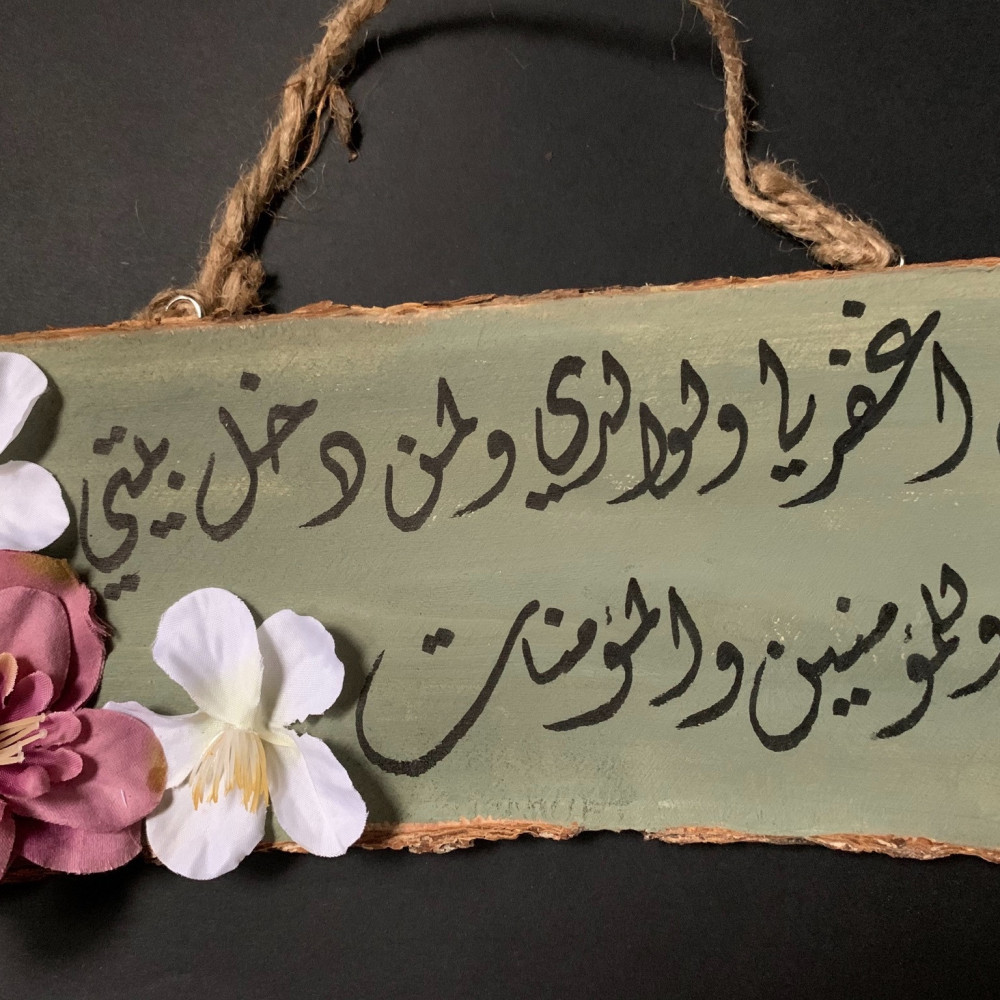 اغفر لي ولوالدي ولمن دخل بيتي
وللمؤمنين والمؤمنات